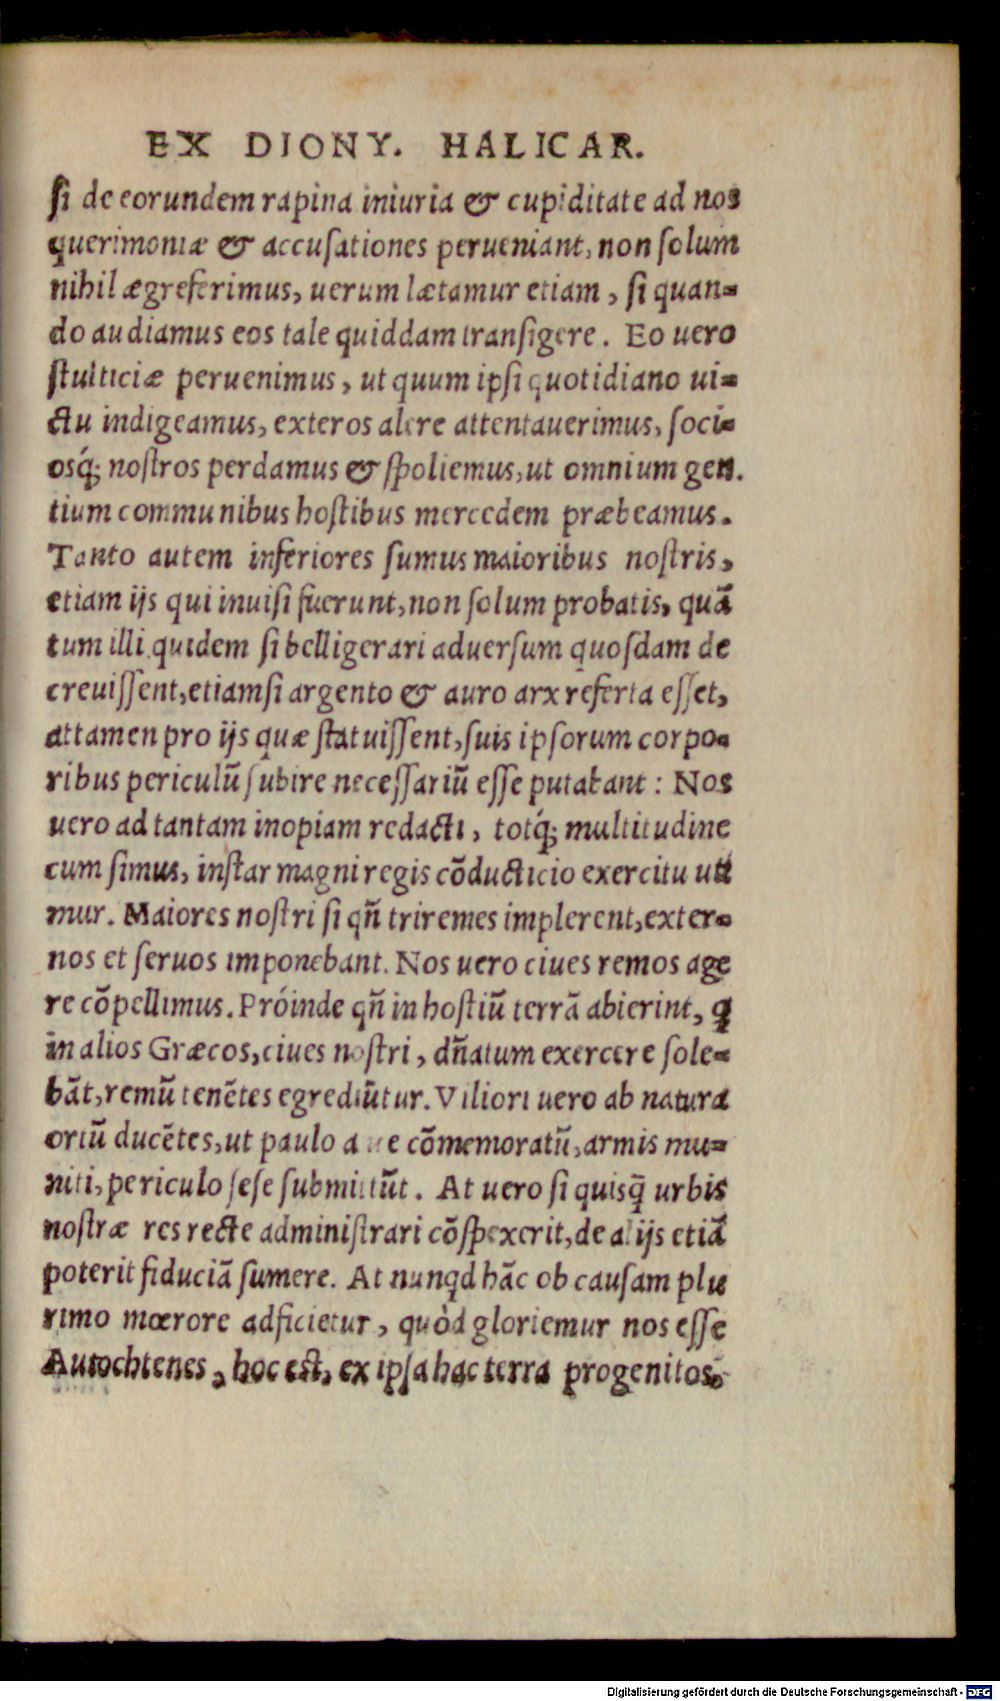 EX DIONY. HALICAR.
si de eorundem rapina iniuria & cupiditate ad nos
querimoniæ & accusationes perueniant, non solum
nihil ægreferimus, uerum lætamur etiam, si quan=
do audiamus eos tale quiddam transigere. Eo uero
stulticiæ peruenimus, ut quum ipsi quotidiano ui=
ctu indigeamus, exteros alere attentauerimus, soci=
osq́; nostros perdamus & spoliemus, ut omnium gen.
tium communibus hostibus mercedem præbeamus.
Tanto autem inferiores sumus maioribus nostris,
etiam ijs qui inuisi fuerunt, non solum probatis, quā
tum illi quidem si belligerari aduersum quosdam de
creuissent, etiamsi argento & auro arx referta esset,
attamen pro ijs quæ statuissent, suis ipsorum corpo=
ribus periculū subire necessariū esse putabant: Nos
uero ad tantam inopiam redacti, totq́; multitudine
cum simus, instar magni regis cōducticio exercitu uti
mur. Maiores nostri si qñ triremes implerent, exter=
nos et seruos imponebant. Nos uero ciues remos age
re cōpellimus. Próinde qñ in hostiū terrā abierint, q
in alios Græcos, ciues nostri, dñatum exercere sole=
bāt, remū tenētes egrediūtur. Viliori uero ab natura
ortū ducētes, ut paulo ante cōmemoratū, armis mu=
niti, periculo sese submittūt. At uero si quisq̄ urbis
nostræ res recte administrari cōspexerit, de alijs etiā
poterit fiduciā sumere. At nunqd hāc ob causam plu
rimo mœrore adficietur, quòd gloriemur nos esse
Autochtenes, hoc est, ex ipsa hac terra progenitos.
Digitalisierung gefördert durch die Deutsche Forschungsgemeinschaft - DFG